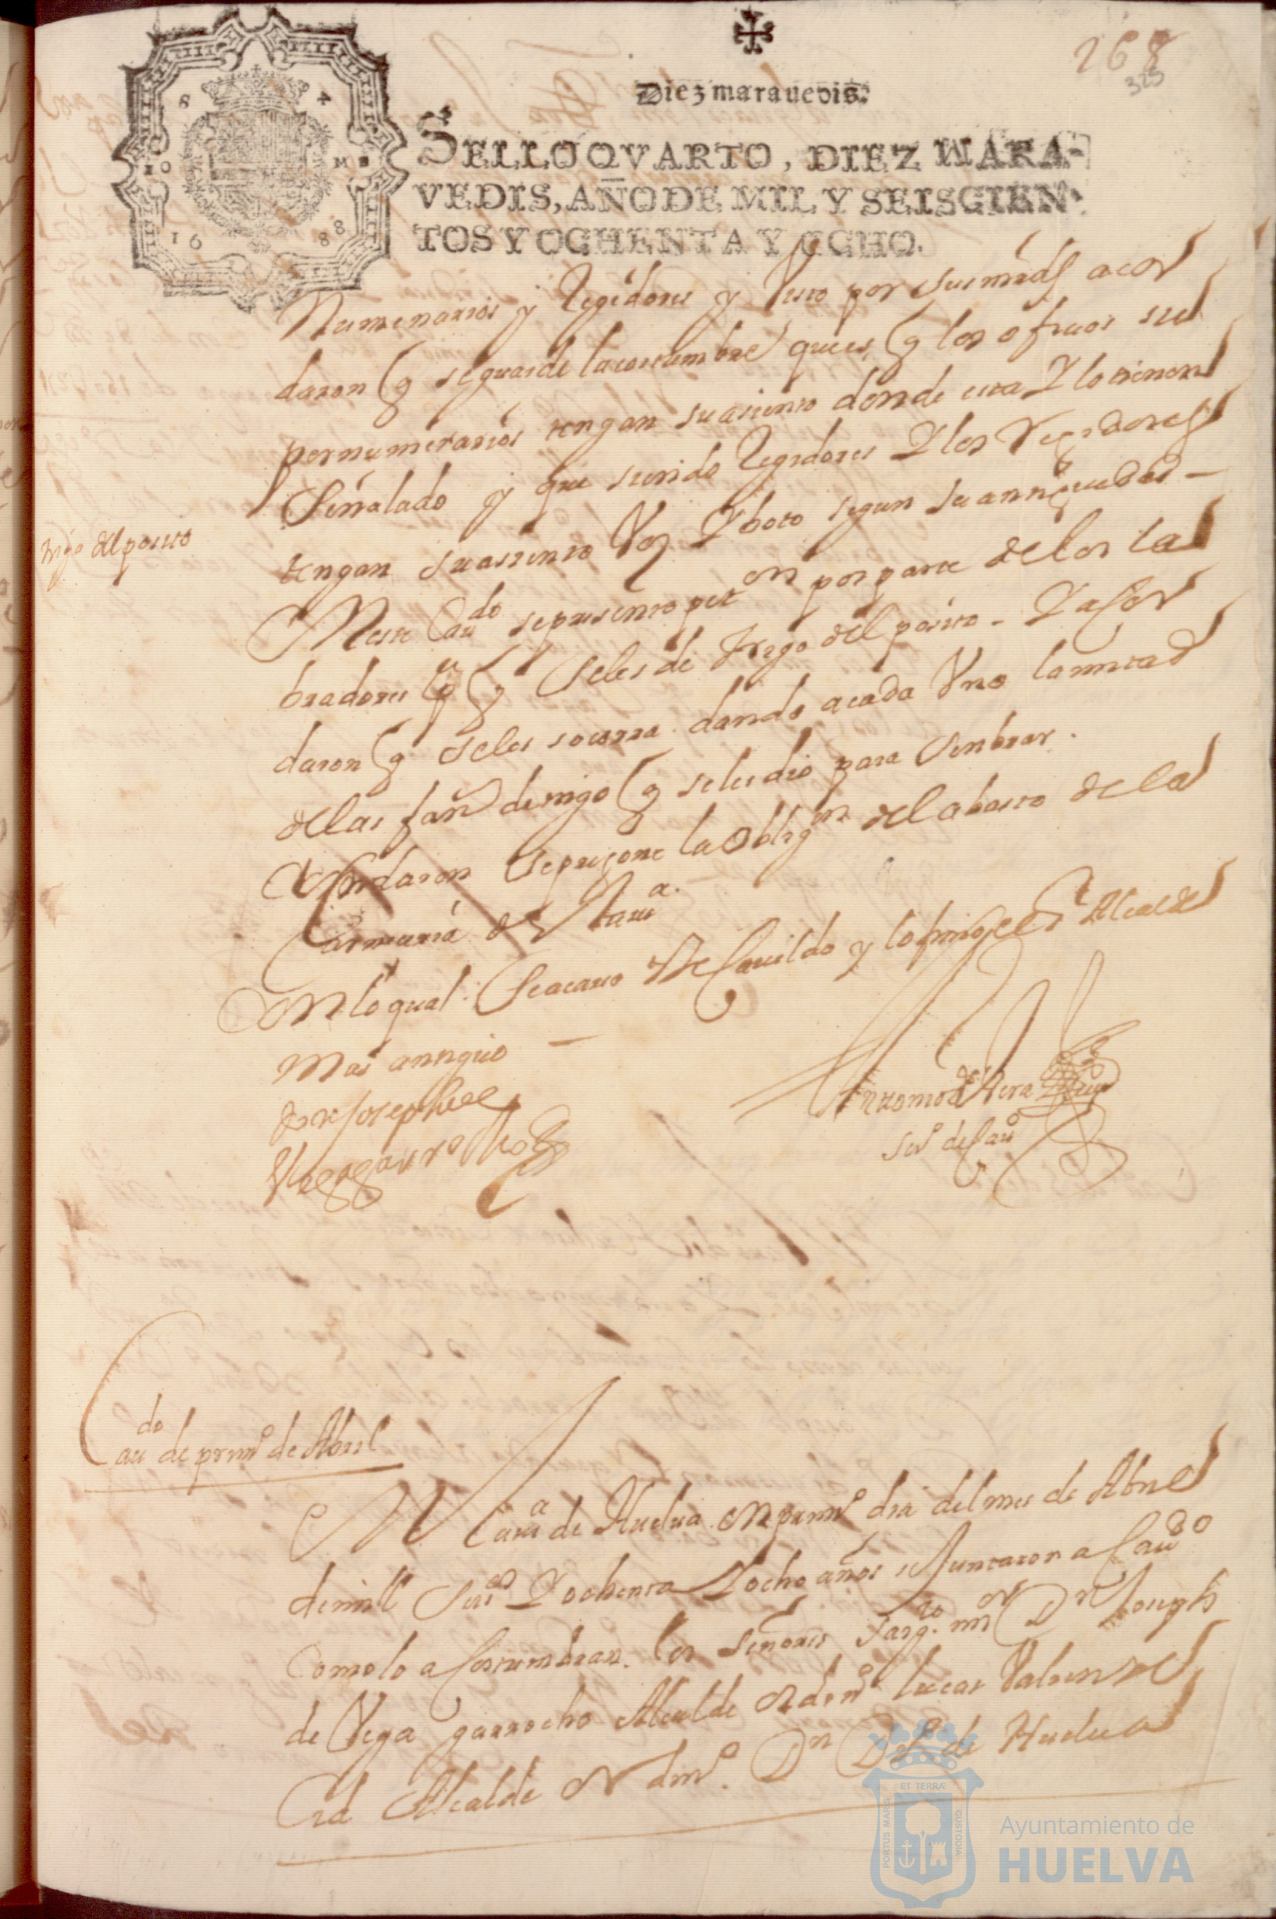 268
325
Diez marauedis.
SELLO QVARTO, DIEZ MARA-
VEDIS, AÑO DE MIL Y SEISCIEN-
TOS Y OCHENTA Y OCHO.
16 88
Numerarios y Regidores y Visto por sus mrds acor
daron q se guarde la costumbre que es q los ofiçios su
pernumerarios tengan su asiento donde esta Y lo tienen
Señalado y que siendo Regidores Y los Regidores
tengan su asiento Voz Y boto segun su antiguedad -
trigo del posito
Neste Caudo se presento peton por parte de los la
bradores pa q Seles de trigo del posito - Y acor
daron q se les socorra dando a cada Vno la mitad
de las fans de trigo q se les dio para Senbrar.
Acordaron Se pregone la Obligon del abasto de la
Carneceria de Na.
En lo qual Se acavo Este Cavildo y lo firmo el Sr Alcalde
Mas antiguo —
Don Joseph de
Vega garrocho
Antonio de Vera
Sno de Cauo
Caudo de primo de Abril
En la Va de Huelva En primo dia del mes de Abril
de mill Seisos Y ochenta Y ocho años se Juntaron a Caudo
Como lo acostumbran los Señores Sargto mor Dn Joseph
de Vega garrocho Alcalde Ordino Lucas Valen
Cid Alcalde Ordino. Dn Dgo de Huelua
PORTUS MARIS ET TERRÆ CUSTODIA
Ayuntamiento de
HUELVA